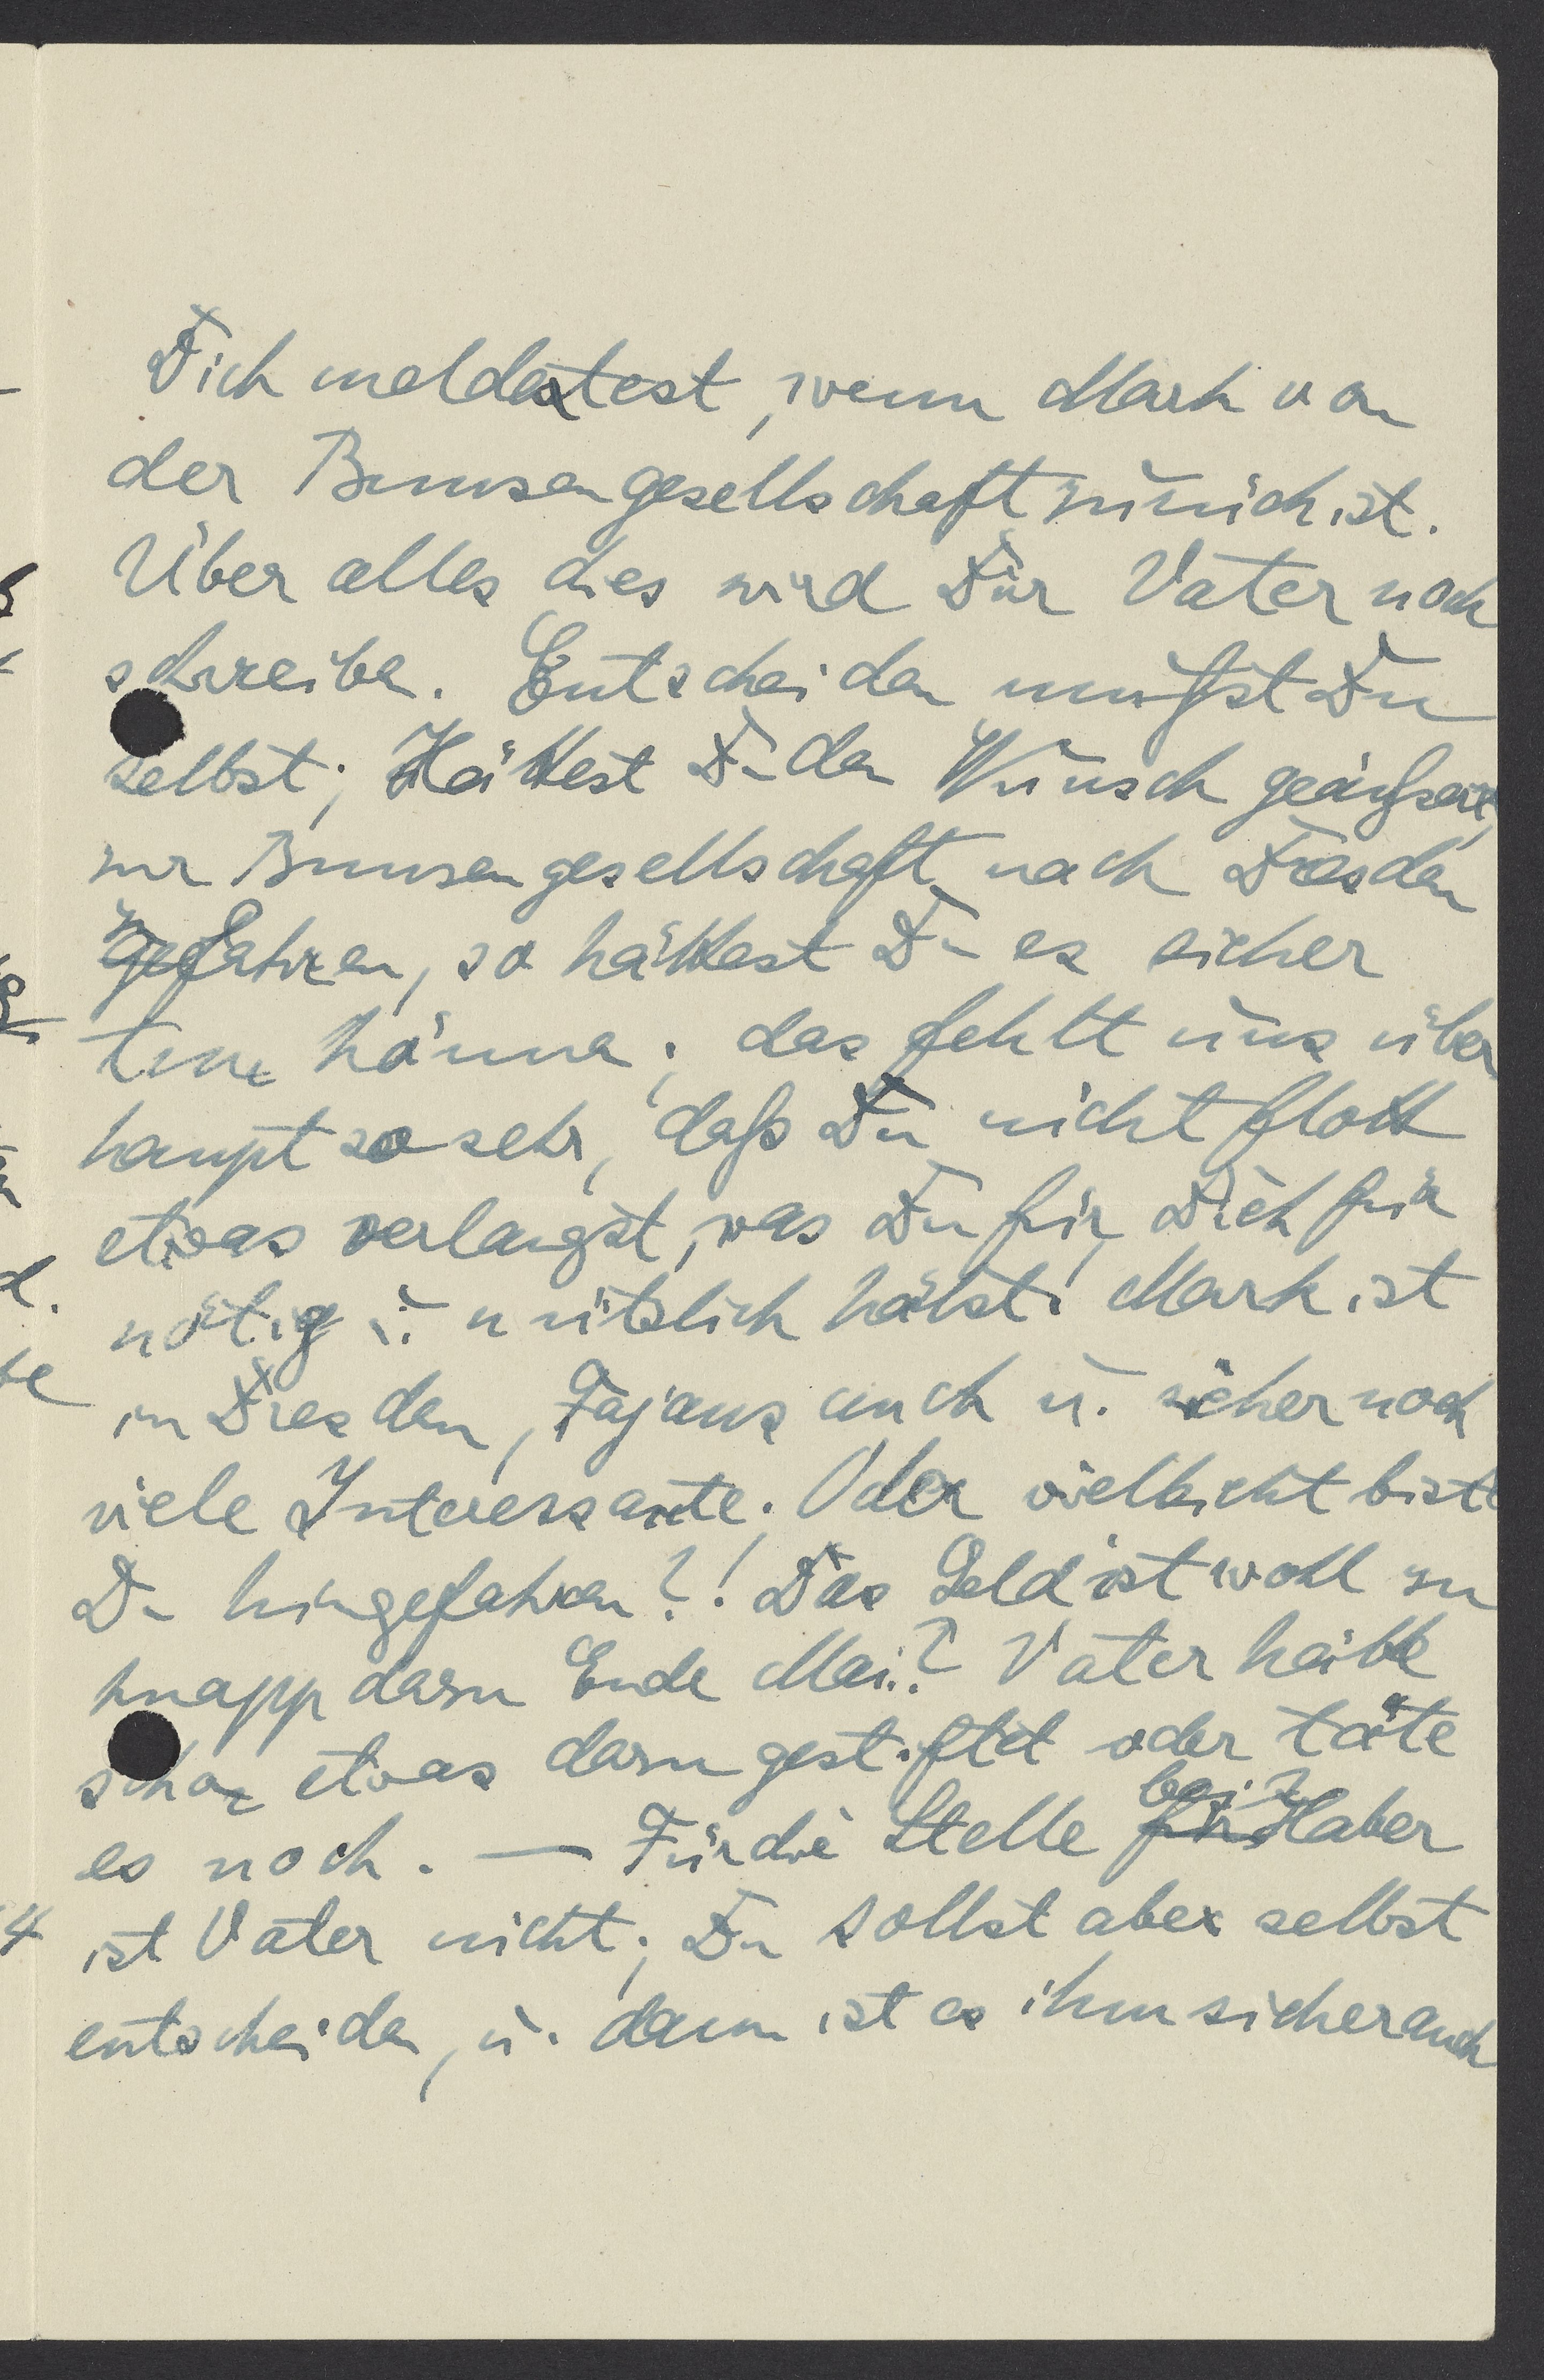 Dich meldetest, wenn Mark von
der Bunsengesellschaft zurück ist.
Über alles dies wird Dir Vater noch
schreiben. Entscheiden mußt Du
selbst; Hättest Du den Wunsch geäußert,
zur Bunsengesellschaft nach Dresden
zu fahren, so hättest Du es sicher
tun können; das fehlt uns über
haupt so sehr, daß Du nicht flott
etwas verlangst, was Du für Dich für
nötig u. nützlich hälst! Mark ist
in Dresden, Fajans auch u. sicher noch
viele Interessante. Oder vielleicht bist
Du hingefahren?! Das Geld ist wohl zu
knapp dazu Ende Mai? Vater hätte
schon etwas dazu gestiftet oder täte
es noch. — Für die Stelle bei Haber
ist Vater nicht; Du sollst aber selbst
entscheiden, u. dann ist es ihm sicher auch